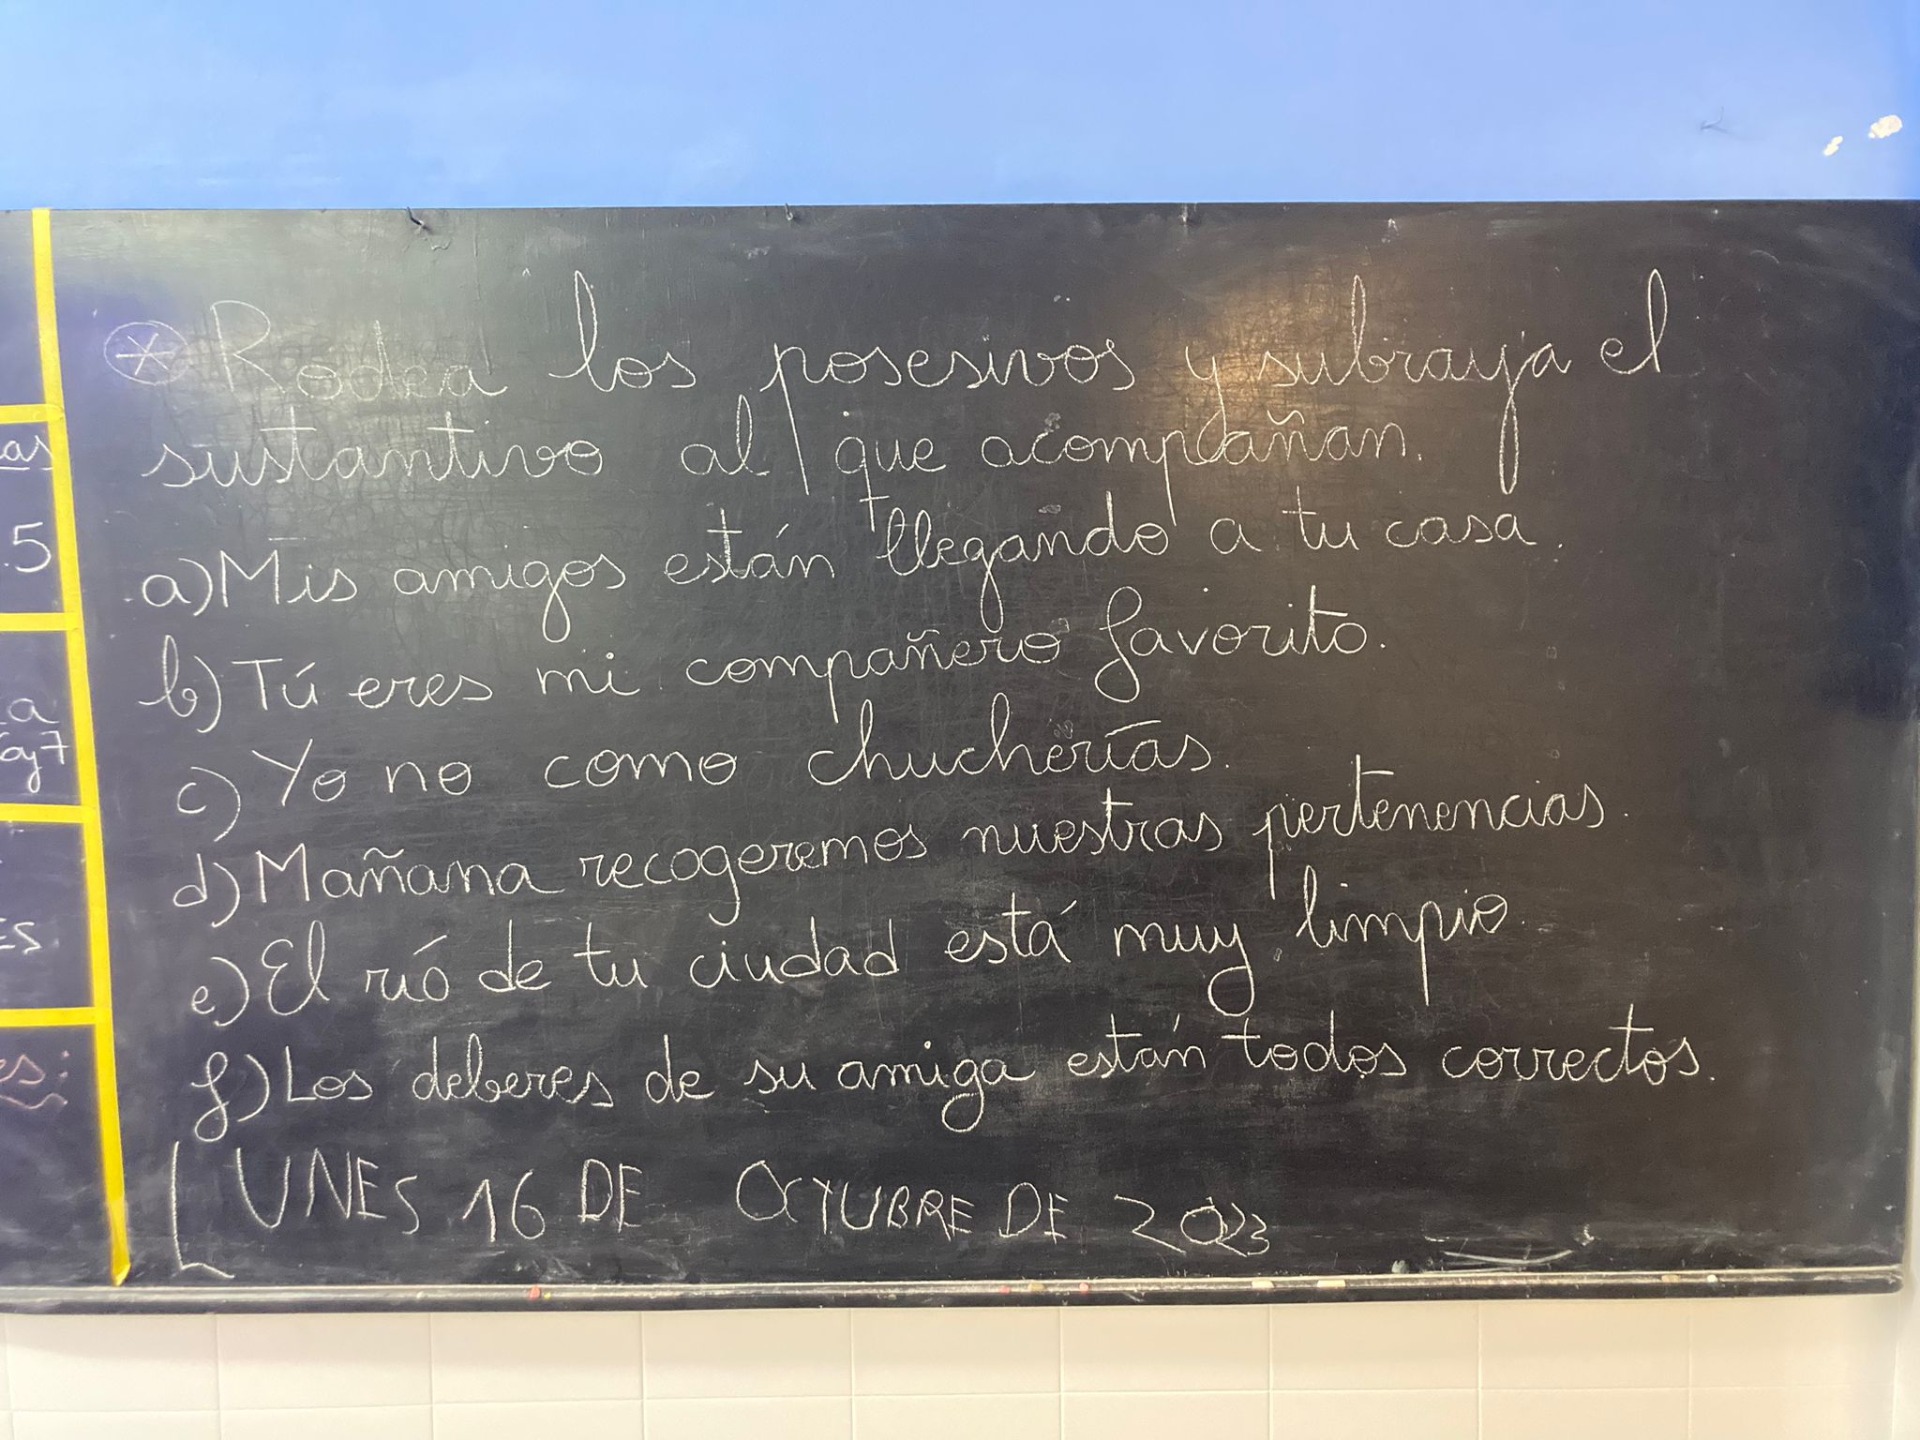 as
5
a
oy7
es
es:
* Rodea los posesivos y subraya el
sustantivo al que acompañan.
a) Mis amigos están llegando a tu casa.
b) Tú eres mi compañero favorito.
c) Yo no como chucherías.
d) Mañana recogeremos nuestras pertenencias.
e) El río de tu ciudad está muy limpio.
f) Los deberes de su amiga están todos correctos.
LUNES 16 DE OCTUBRE DE 2023